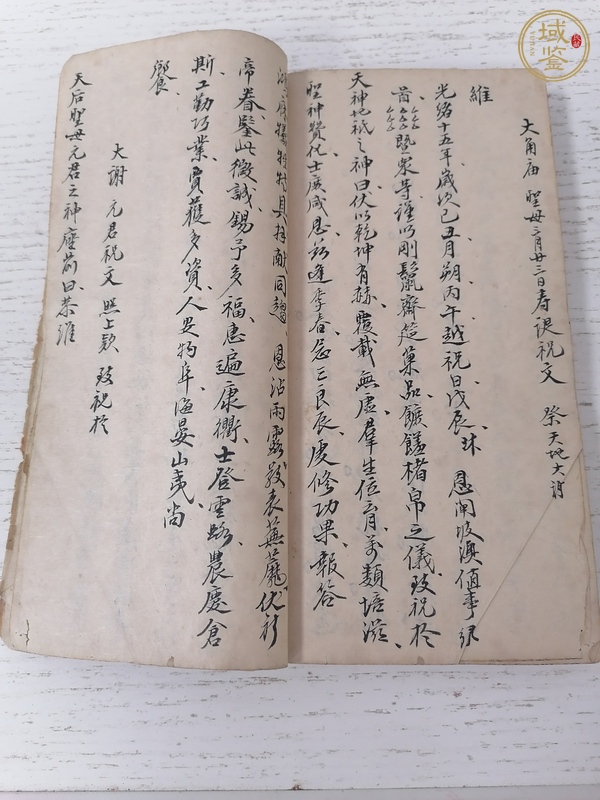 大角庙 聖母三月廿三日寿诞祝文 祭天地大謝
維
光绪十五年歲次己丑月朔丙午越祝日戊辰 沐 恩闸坡澳值事
首 暨衆等謹以剛鬣齋筵菓品饌饈楮帛之儀致祝於
天神地祇之神曰伏以乾坤有赫覆載無虚羣生位育萬類培滋
聖神贊化士庶咸恩兹逢季春念三良辰虔修功果報答
具扶献同趨 恩沾雨露敬表蕪蘼伏祈
帝眷鑒此微誠錫予多福惠遍康衢士登雲路農慶倉
斯工勤巧業賈獲多資人興物阜海晏山夷尚
饗
大謝 元君祝文 照上款 致祝於
天后聖母元君之神座前曰恭維
域鉴